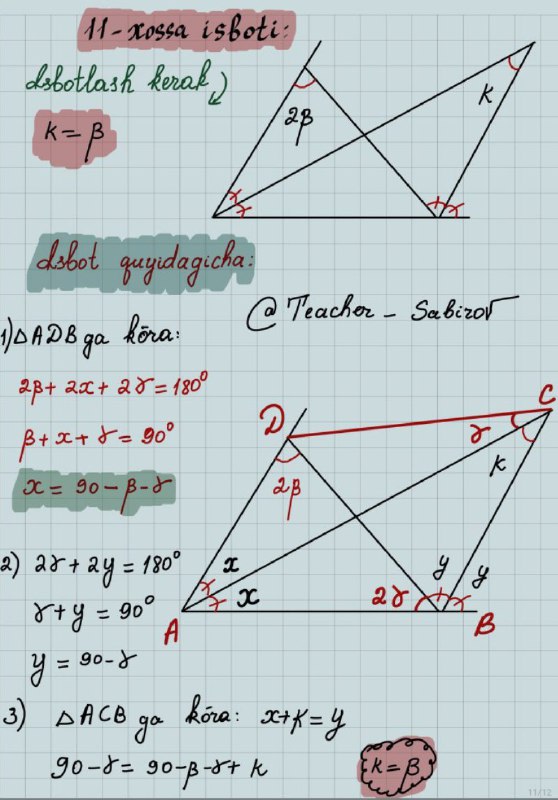 11-xossa isboti:
Isbotlash kerak
k = β
2β
k
Isbot quyidagicha:
@Teacher_Sabirov
1) △ADB ga kōra:
2β + 2x + 2γ = 180°
β + x + γ = 90°
x = 90 - β - γ
D
C
γ
k
2β
x
x
2γ
y
y
A
B
2) 2γ + 2y = 180°
γ + y = 90°
y = 90 - γ
3) △ACB ga kōra: x + k = y
90 - γ = 90 - β - γ + k
k = β
11/12